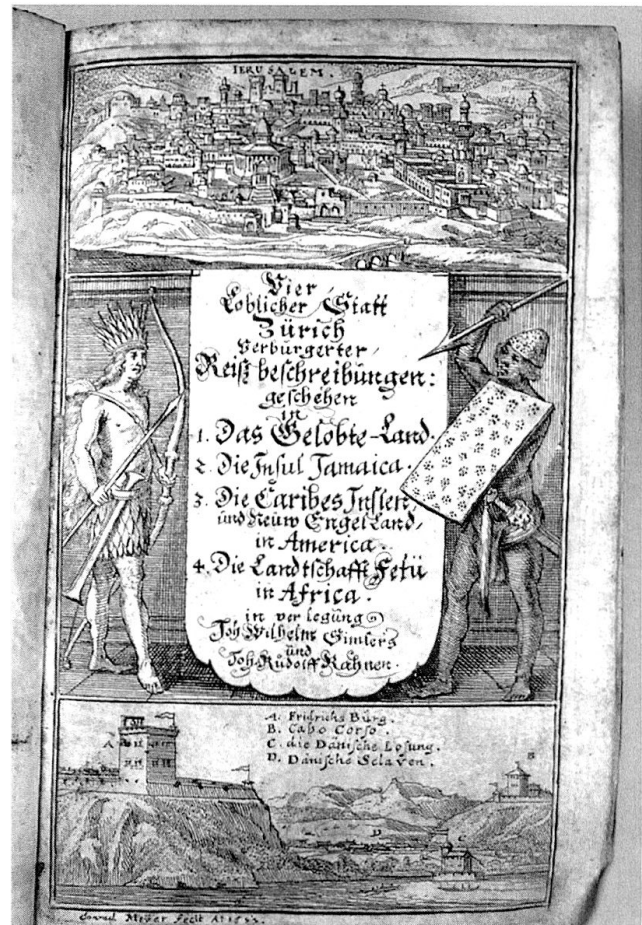 IERUSALEM.
Vier
Loblicher Statt
Zürich
Verbürgerter
Reiß beschreibüngen:
geschehen
in
1. Das Gelobte-Land.
2. Die Insul Jamaica.
3. Die Caribes Inslen,
und Neüw Engel Land,
in America.
4. Die Landtschafft Fetü
in Africa.
in verlegung
Joh Wilhelm Simlers
und
Joh. Rüdolff Rahnen.
A. Fridrichs Bürg.
B. Cabo Corso.
C. die Dänische Losung.
D. Dänische Sclaven.
A
B
D
C
Conrad Meyer fecit A°